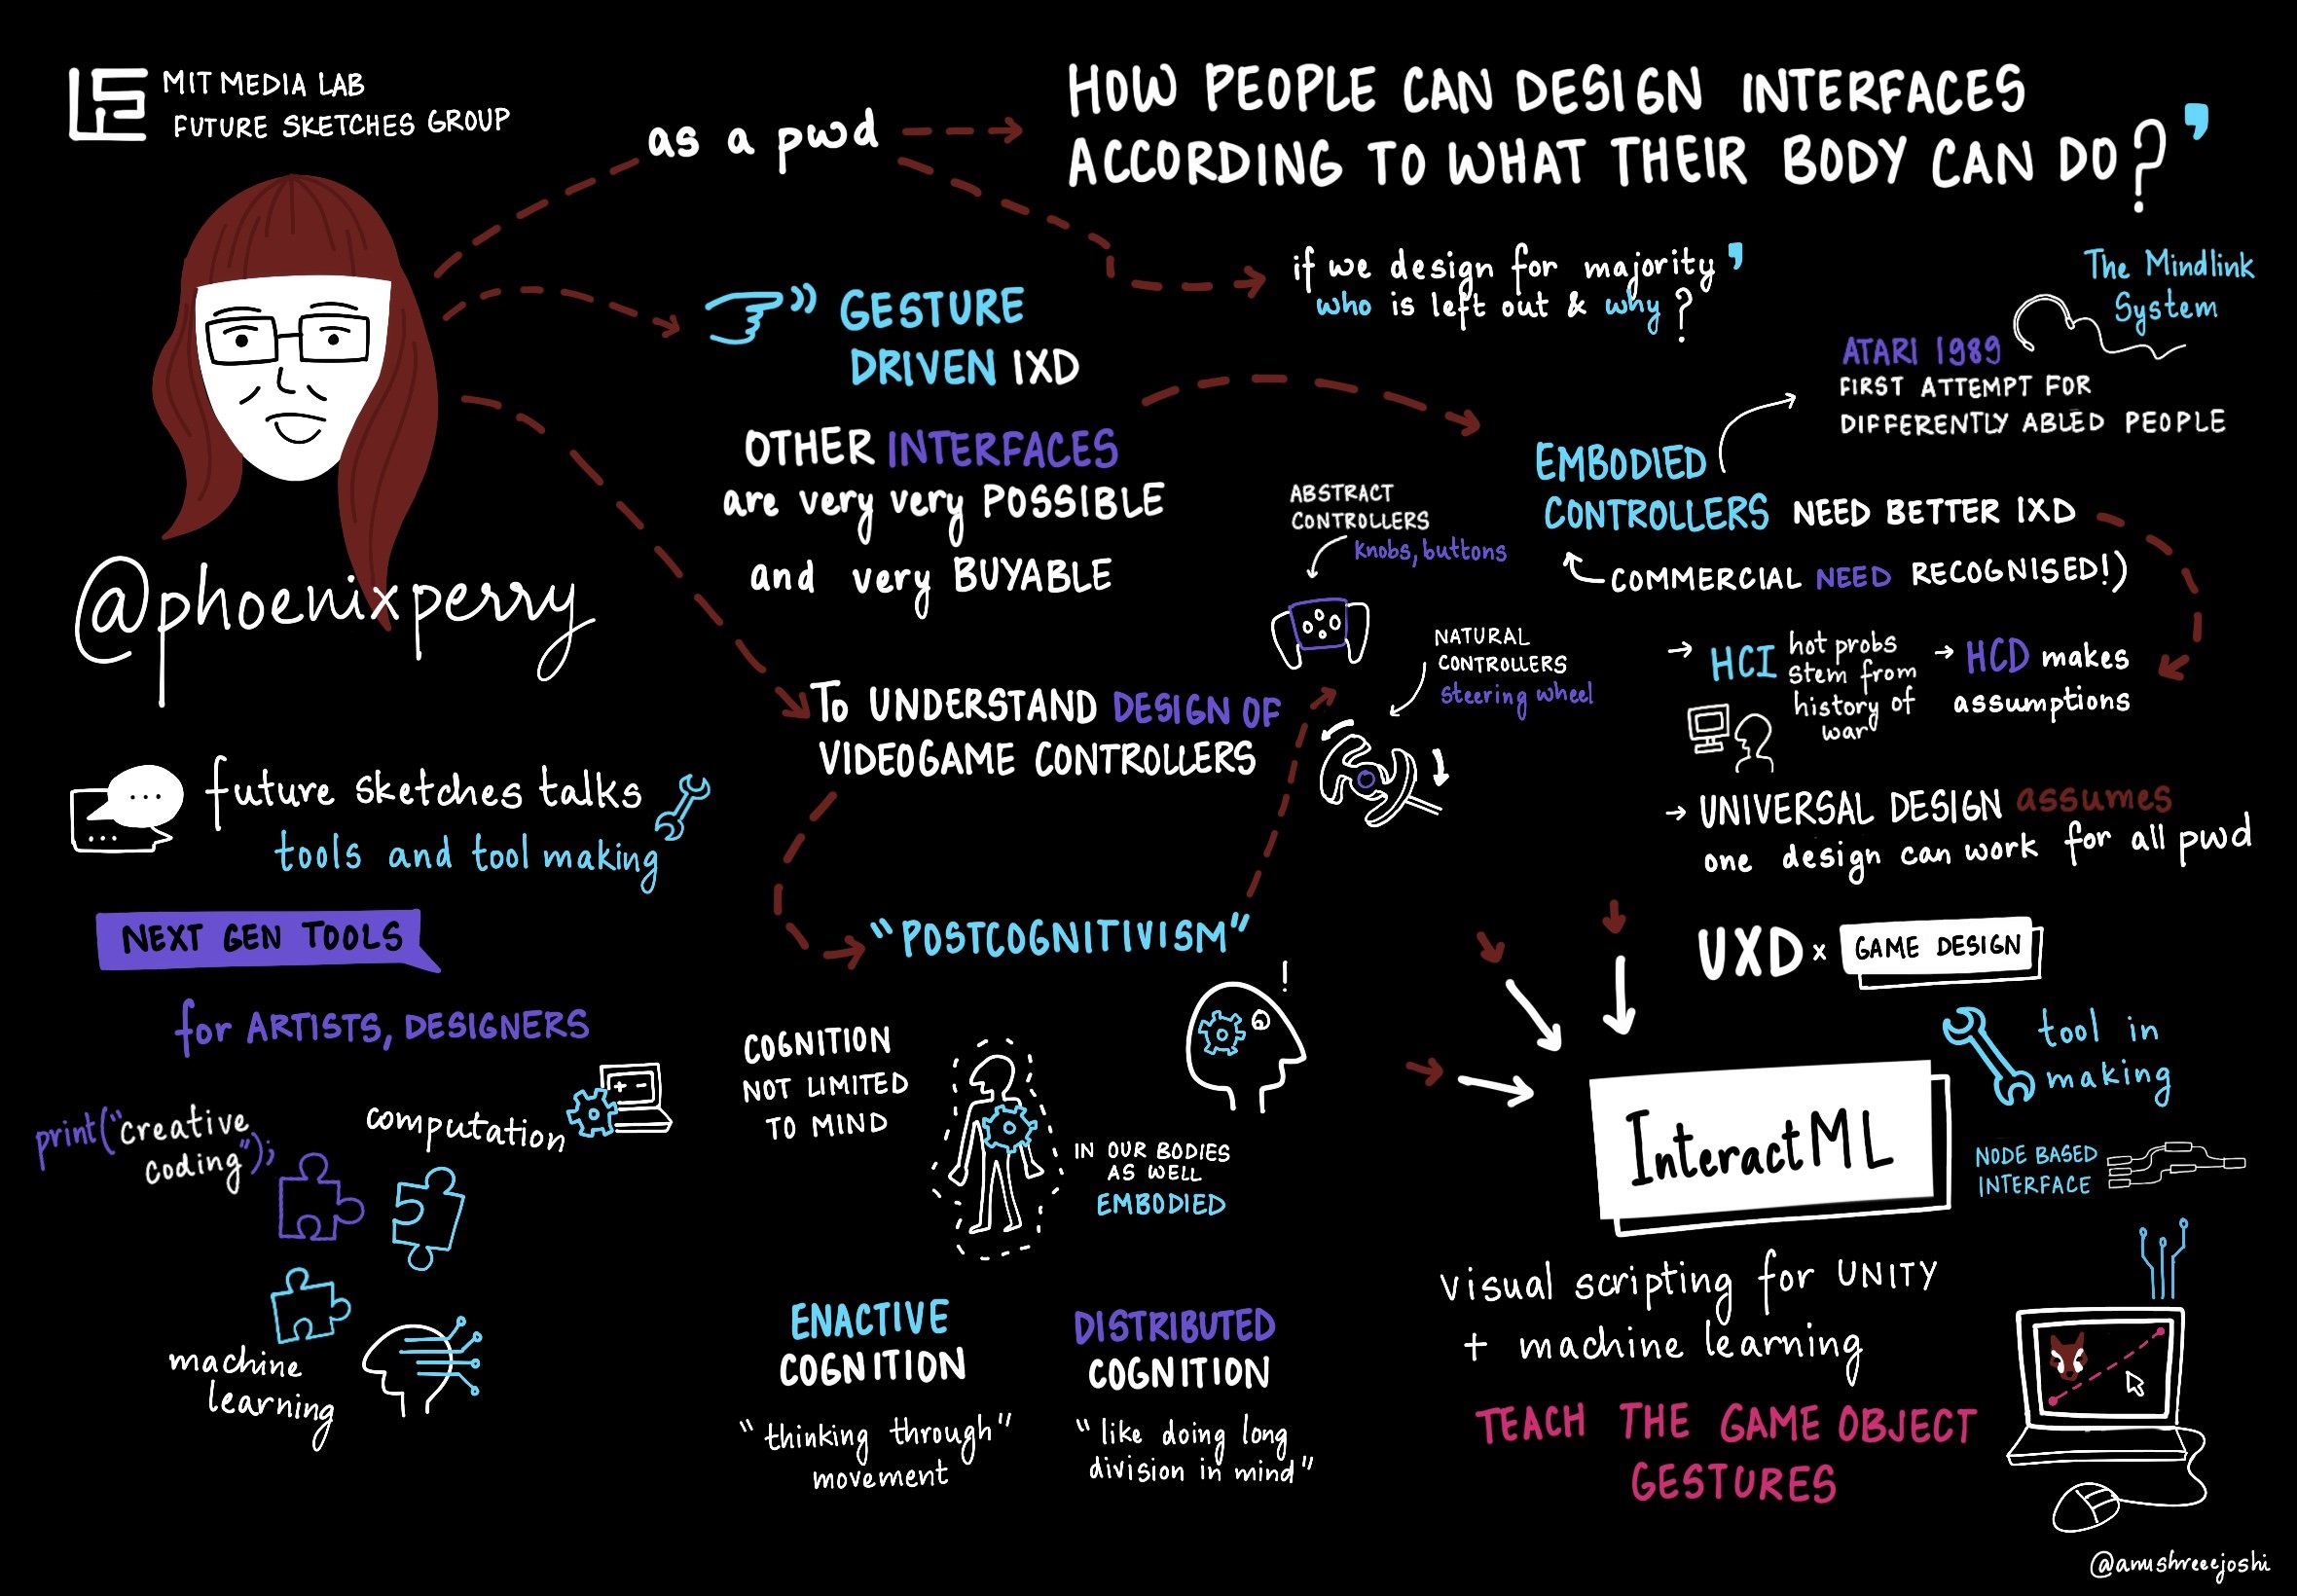 MIT MEDIA LAB
FUTURE SKETCHES GROUP
@phoenixperry
future sketches talks
tools and tool making
NEXT GEN TOOLS
for ARTISTS, DESIGNERS
print("creative
coding");
computation
machine
learning
as a pwd
HOW PEOPLE CAN DESIGN INTERFACES
ACCORDING TO WHAT THEIR BODY CAN DO?
if we design for majority
who is left out & why?
GESTURE
DRIVEN IXD
OTHER INTERFACES
are very very POSSIBLE
and very BUYABLE
To UNDERSTAND DESIGN OF
VIDEOGAME CONTROLLERS
ABSTRACT
CONTROLLERS
knobs, buttons
NATURAL
CONTROLLERS
steering wheel
"POSTCOGNITIVISM"
COGNITION
NOT LIMITED
TO MIND
!
IN OUR BODIES
AS WELL
EMBODIED
ENACTIVE
COGNITION
"thinking through"
movement
DISTRIBUTED
COGNITION
"like doing long
division in mind"
The Mindlink
System
ATARI 1989
FIRST ATTEMPT FOR
DIFFERENTLY ABLED PEOPLE
EMBODIED
CONTROLLERS NEED BETTER IXD
COMMERCIAL NEED RECOGNISED!)
HCI hot probs
stem from
history of
war
HCD makes
assumptions
UNIVERSAL DESIGN assumes
one design can work for all pwd
UXD x GAME DESIGN
tool in
making
InteractML
NODE BASED
INTERFACE
visual scripting for UNITY
+ machine learning
TEACH THE GAME OBJECT
GESTURES
@anushreeejoshi